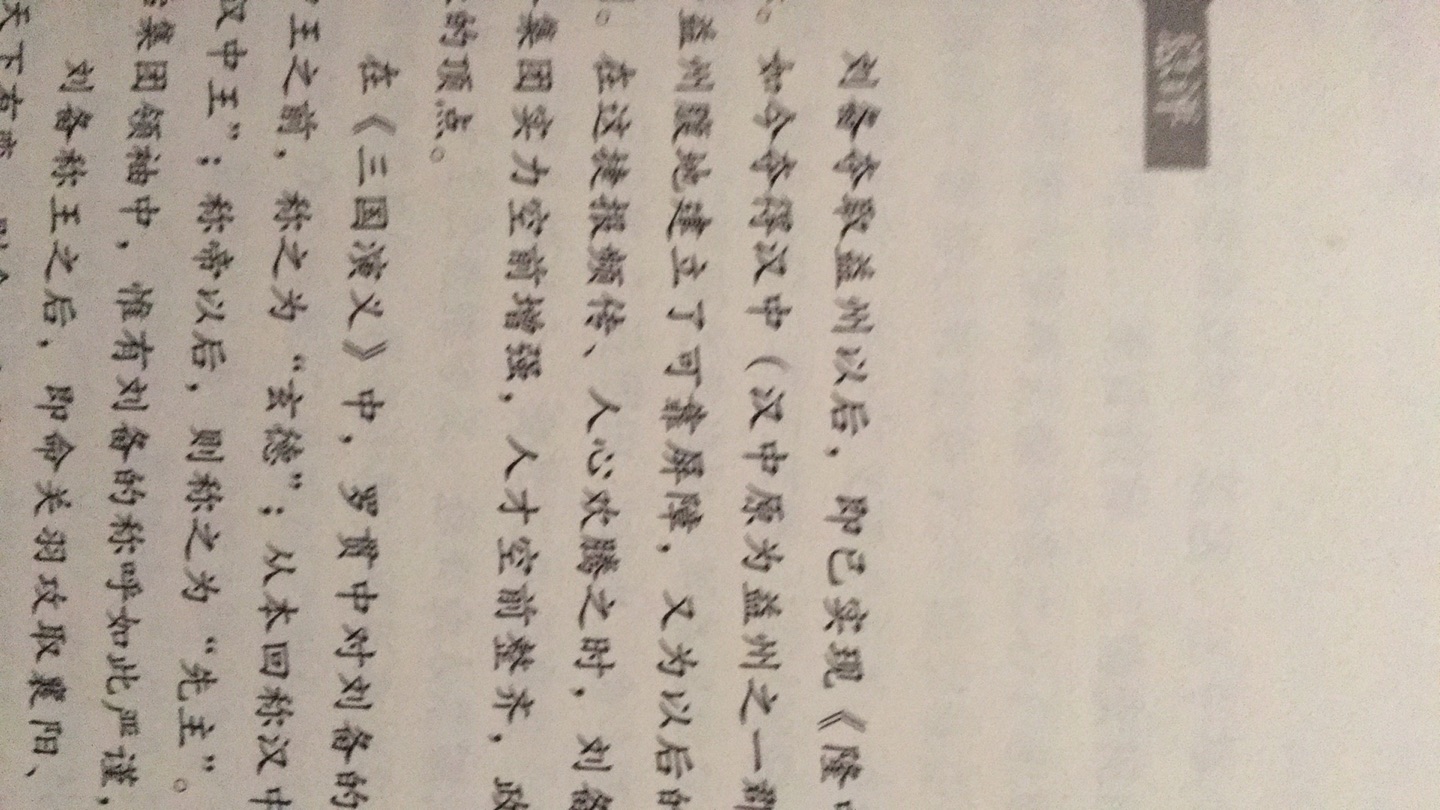 总评
刘备夺取益州以后，即已实现《隆
。如今夺得汉中（汉中原为益州之一部
益州腹地建立了可靠屏障，又为以后的
。在这捷报频传、人心欢腾之时，刘备
集团实力空前增强，人才空前整齐，政
的顶点。
在《三国演义》中，罗贯中对刘备的
王之前，称之为“玄德”；从本回称汉中
汉中王”；称帝以后，则称之为“先主”。
集团领袖中，惟有刘备的称呼如此严谨，
刘备称王之后，即命关羽攻取襄阳、
天下有